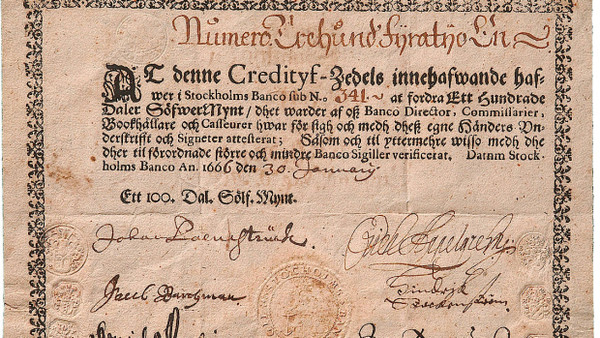 Numero Trehund Fyratyo En
AT denne Credityf-Zedels innehafwande haf-
wer i Stockholms Banco sub N.o 341. at fordra Ett Hundrade
Daler SölfwerMynt / dhet warder af oß Banco Director, Commissarier,
Bookhållare och Casseurer hwar för sigh och medh dheß egne Händers Vn-
derskrifft och Signeter attesterat; Såsom och til yttermehre wisso medh dhe
dher til förordnade större och mindre Banco Sigiller verificerat. Datum Stock-
holms Banco An. 1666 den 30. January
Ett 100. Dal. Sölf. Mynt.
Johan
Jacob